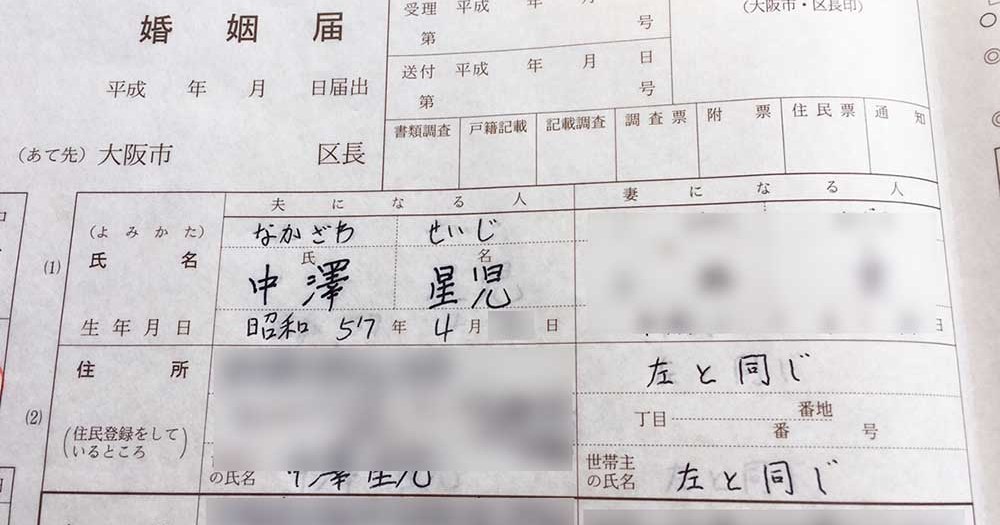 婚姻届
平成 年 月 日届出
(あて先) 大阪市 区長
受理 平成 年 月
第 号
送付 平成 年 月 日
第 号
(大阪市・区長印)
書類調査 戸籍記載 記載調査 調査票 附票 住民票 通知
夫になる人 妻になる人
(よみかた) なかざわ せいじ
(1) 氏名 氏 名
中澤 星児
生年月日 昭和 57年 4月 日 日
(2) 住所 左と同じ
(住民登録をしているところ) 丁目 番地
番 号
の氏名 中澤星児
世帯主の氏名 左と同じ